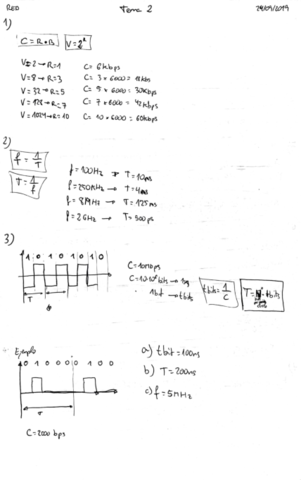 RED Tema 2 24/09/2019
1)
C = R · B V = 2^R
V = 2 → R = 1 C = 6 kbps
V = 8 → R = 3 C = 3 × 6000 = 18 kbps
V = 32 → R = 5 C = 5 × 6000 = 30 kbps
V = 128 → R = 7 C = 7 × 6000 = 42 kbps
V = 1024 → R = 10 C = 10 × 6000 = 60 kbps
2)
f = 1/T
T = 1/f
f = 100 Hz → T = 10 ms
f = 250 KHz → T = 4 ms
f = 8 MHz → T = 125 ms
f = 2 GHz → T = 500 ps
3)
1 0 1 0 1 0 1 0
1 bit → t bit
t bit = 1/C
T
Ejemplo
0 1 0 0 0 0 1 0 0
a) t bit = 100 ms
b) T = 200 ms
c) f = 5 MHz
T
C = 2000 bps